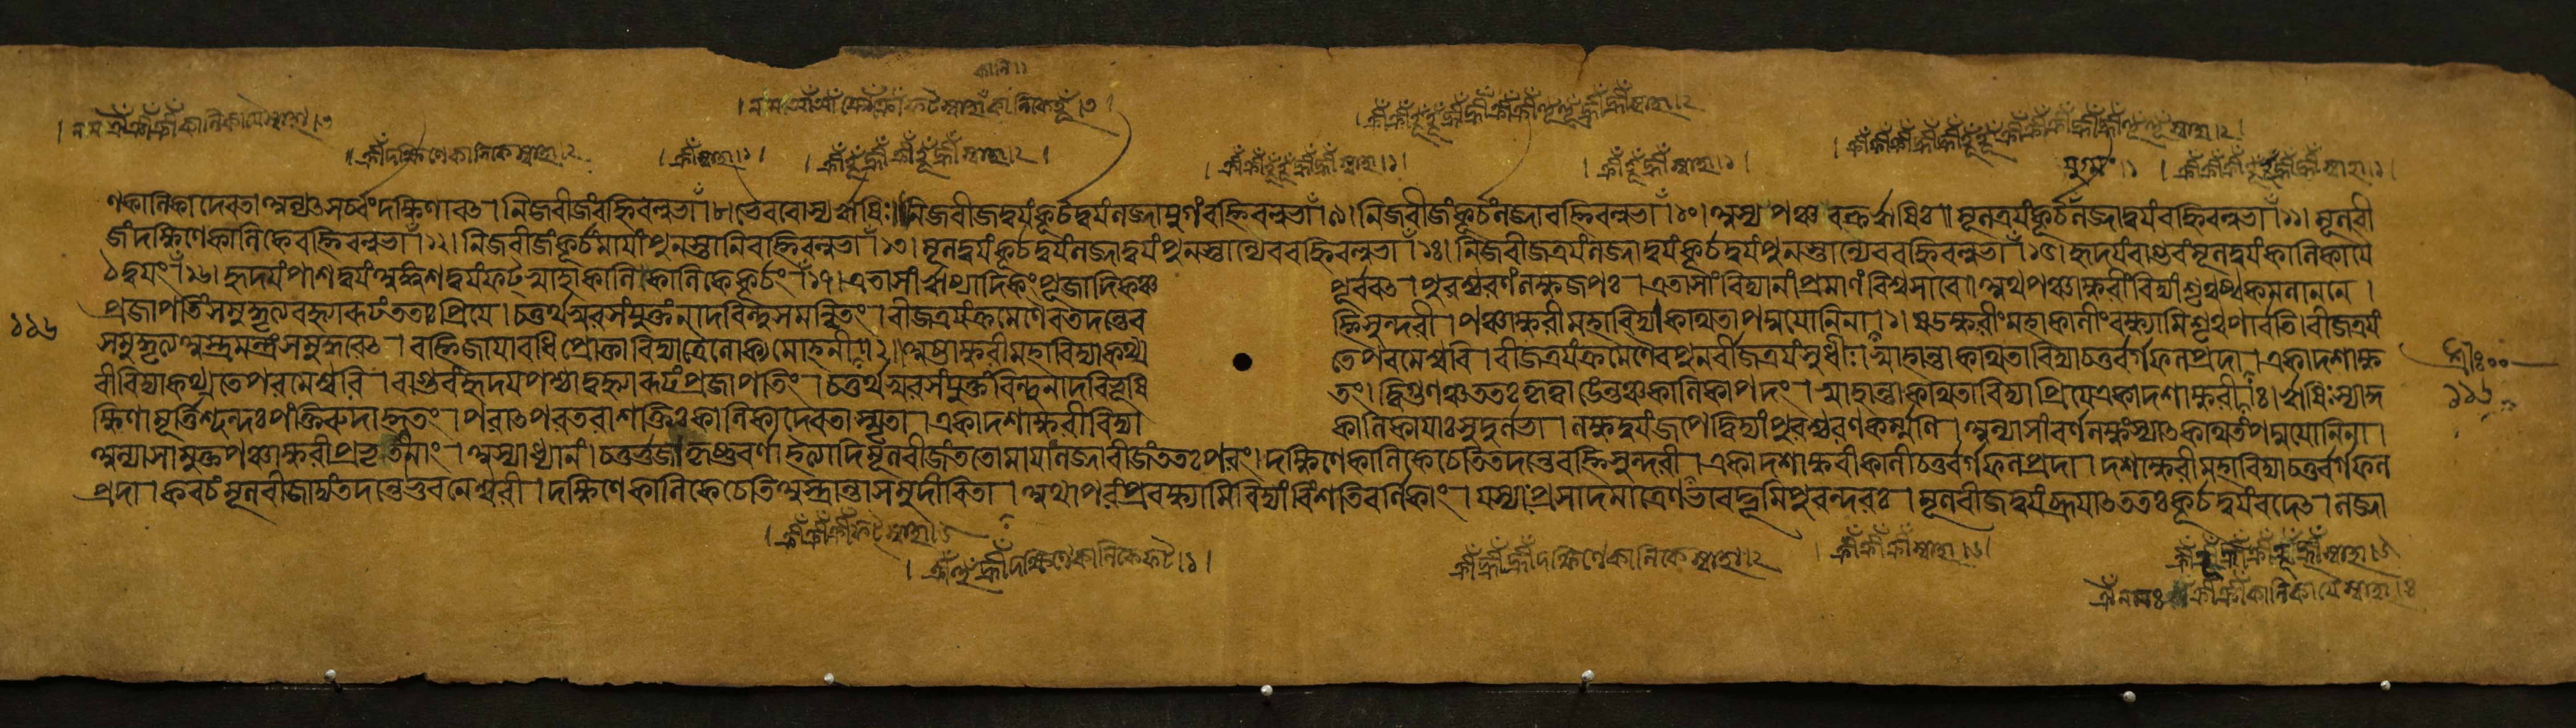 কালি।।
।নমঃ ঐঁ ক্রীঁ ক্রীঁ কালিকায়ৈ স্বাহা।৩
।ক্রীঁ দক্ষিণে কালিকে স্বাহা।২
।ক্রীঁ স্বাহা।১।
।ক্রীঁ হূঁ হ্রীঁ ক্রীঁ হূঁ হ্রীঁ স্বাহা।২।
।ক্রীঁ ক্রীঁ হূঁ হূঁ হ্রীঁ হ্রীঁ স্বাহা।১।
।ক্রীঁ হূঁ হ্রীঁ স্বাহা।১।
যুগ্মং।১
।ক্রীঁ ক্রীঁ ক্রীঁ হূঁ হূঁ হ্রীঁ হ্রীঁ স্বাহা।১।
ণকালিকাদেবতা অন্যৎ সর্ব্বং দক্ষিণাবৎ । নিজবীজং বহ্নিবল্লভা ।৮।ভৈরবোস্য ঋষিঃ। নিজবীজদ্বয়ং কূর্চদ্বয়ং লজ্জাযুগং বহ্নিবল্লভা ।৯। নিজবীজং কূর্চং লজ্জা বহ্নিবল্লভা ।১০। অস্য পঞ্চবক্ত্র ঋষিঃ॥ মূলত্রয়ং কূর্চং লজ্জাদ্বয়ং বহ্নিবল্লভা ।১১। মূলবী
জং দক্ষিণে কালিকে বহ্নিবল্লভা ।১২। নিজবীজং কূর্চমায়াং পুনস্তানি বহ্নিবল্লভা ।১৩। মূলদ্বয়ং কূর্চদ্বয়ং লজ্জাদ্বয়ং পুনস্তান্যেব বহ্নিবল্লভা ।১৪। নিজবীজত্রয়ং লজ্জাদ্বয়ং কূর্চদ্বয়ং পুনস্তান্যেব বহ্নিবল্লভা ।১৫। হৃদয়ং বাগ্ভবং মূলদ্বয়ং কালিকায়ৈ
ঠদ্বয়ং ।১৬। হৃদয়ং পাশদ্বয়ং অঙ্কুশদ্বয়ং ফট্ স্বাহা কালি কালিকে কূর্চং ।১৭। এতাসাং ঋষ্যাদিকং পূজাদিকঞ্চ পূর্ব্ববৎ । পুরশ্চরণং লক্ষজপঃ । এতাসাং বিদ্যানাং প্রমাণং বিশ্বসারে॥ অথ পঞ্চাক্ষরীং বিদ্যাং শৃণুষ্ব কমলাননে ।
১১৬ প্রজাপতিং সমুদ্ধৃত্য বহ্ন্যারূঢং ততঃ প্রিয়ে । চতুর্থস্বরসংযুক্তং নাদবিন্দুসমন্বিতং । বীজত্রয়ং ক্রমেণৈব তদন্তে ব হ্নিসুন্দরী । পঞ্চাক্ষরী মহাবিদ্যা কথিতা পদ্মযোনিনা ।১। ষডক্ষরীং মহাকালীং বক্ষ্যামি শৃণু পার্বতি। বীজত্রয়ং
সমুদ্ধৃত্য অস্ত্রমন্ত্রং সমুদ্ধরেৎ । বহ্নিজায়াবধি প্রোক্তা বিদ্যা ত্রৈলোক্যমোহনী ।২॥ অষ্টাক্ষরী মহাবিদ্যা কথ্য তে পরমেশ্বরি । বীজত্রয়ং ক্রমেণৈব পুনর্বীজত্রয়ং সুধীঃ। স্বাহান্তা কথিতা বিদ্যা চতুর্বর্গফলপ্রদা । একাদশাক্ষ শ্রীঃ০০
রীবিদ্যা কথ্যতে পরমেশ্বরি । বাগ্ভবং হৃদয়ং পশ্চাদ্বহ্ন্যারূঢং প্রজাপতিং । চতুর্থস্বরসংযুক্তং বিন্দুনাদবিভূষি তং। দ্বিগুণঞ্চ ততঃ কৃত্বা ঙেন্তঞ্চ কালিকাপদং । স্বাহান্তা কথিতা বিদ্যা প্রিয়ে একাদশাক্ষরী ।৪। ঋষিঃ স্যাদ্দ ১১৬
ক্ষিণামূর্ত্তিশ্ছন্দঃ পংক্তিরুদাহৃতং । পরাৎপরতরা শক্তিঃ কালিকা দেবতা স্মৃতা । একাদশাক্ষরী বিদ্যা কালিকায়াঃ সুদুর্লভা । লক্ষদ্বয়ং জপেদ্বিদ্যাং পুরশ্চরণকর্ম্মণি । অন্যাসাং বর্ণলক্ষং স্যাৎ কথিতং পদ্মযোনিনা ।
অন্যাসামুক্তপঞ্চাক্ষরীপ্রভৃতীনাং । অস্যা ধ্যানং। চতুর্ভুজা কৃষ্ণবর্ণা ইত্যাদি মূলবীজং ততো মায়াং লজ্জাবীজং ততঃ পরং। দক্ষিণে কালিকে চেতি তদন্তে বহ্নিসুন্দরী । একাদশাক্ষরী কালী চতুর্বর্গফলপ্রদা । দশাক্ষরী মহাবিদ্যা চতুর্বর্গফল
প্রদা । কবচং মূলবীজাদ্যং তদন্তে ভুবনেশ্বরী । দক্ষিণে কালিকে চেতি অস্ত্রান্তা সমুদীরিতা । অথাপরং প্রবক্ষ্যামি বিদ্যাং বিংশতিবর্ণিকাং । যস্যাঃ প্রসাদমাত্রেণ ভবেদ্ভূমিপুরন্দরঃ । মূলবীজদ্বয়ং ব্রূয়াৎ ততঃ কূর্চদ্বয়ং বদেৎ । লজ্জা
।ক্রীঁ ক্রীঁ ক্রীঁ ফট্ স্বাহা।
।ক্রীঁ হূঁ হ্রীঁ দক্ষিণে কালিকে ফট্।১।
।ক্রীঁ হ্রীঁ হ্রীঁ দক্ষিণে কালিকে স্বাহা।২
।ক্রীঁ ক্রীঁ ক্রীঁ স্বাহা।
ঐঁ নমঃ ক্রীঁ ক্রীঁ কালিকায়ৈ স্বাহা।৪